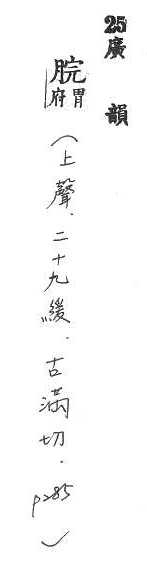 25廣韻
脘胃府(上聲.二十九緩.古滿切.p285)